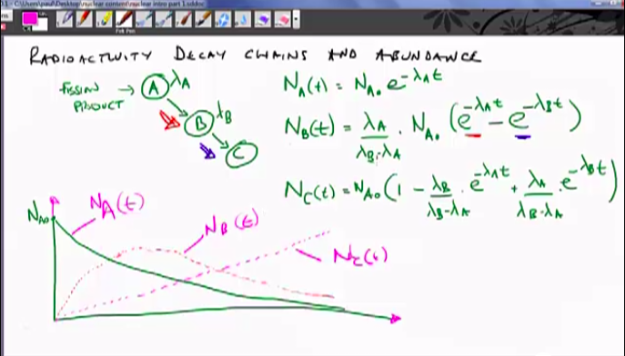 11 - C:\Users\paul\Desktop\nuclear content\nuclear intro part 1.sdoc
Felt Pen
RADIOACTIVITY DECAY CHAINS AND ABUNDANCE
FISSION PRODUCT → A λA
B λB
C
NA(t) = NA₀ e^-λAt
NB(t) = λA/λB-λA · NA₀ (e^-λAt - e^-λBt)
NC(t) = NA₀ (1 - λB/λB-λA · e^-λAt + λA/λB-λA · e^-λBt)
NA₀
NA(t)
NB(t)
NC(t)